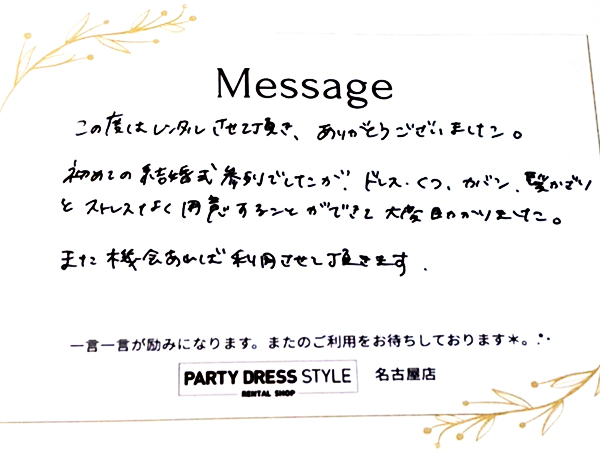 Message
この度はレンタルさせて頂き、ありがとうございました。
初めての結婚式参列でしたが、ドレス、くつ、カバン、髪かざり
とストレスなく用意することができて大変助かりました。
また機会あれば利用させて頂きます.
一言一言が励みになります。またのご利用をお待ちしております＊。.:・
PARTY DRESS STYLE 名古屋店
RENTAL SHOP